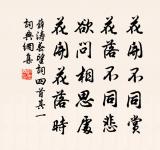 花開不同賞
花落不同悲
欲問相思處
花開花落時
薛濤春望詞四首其一
詞典網集